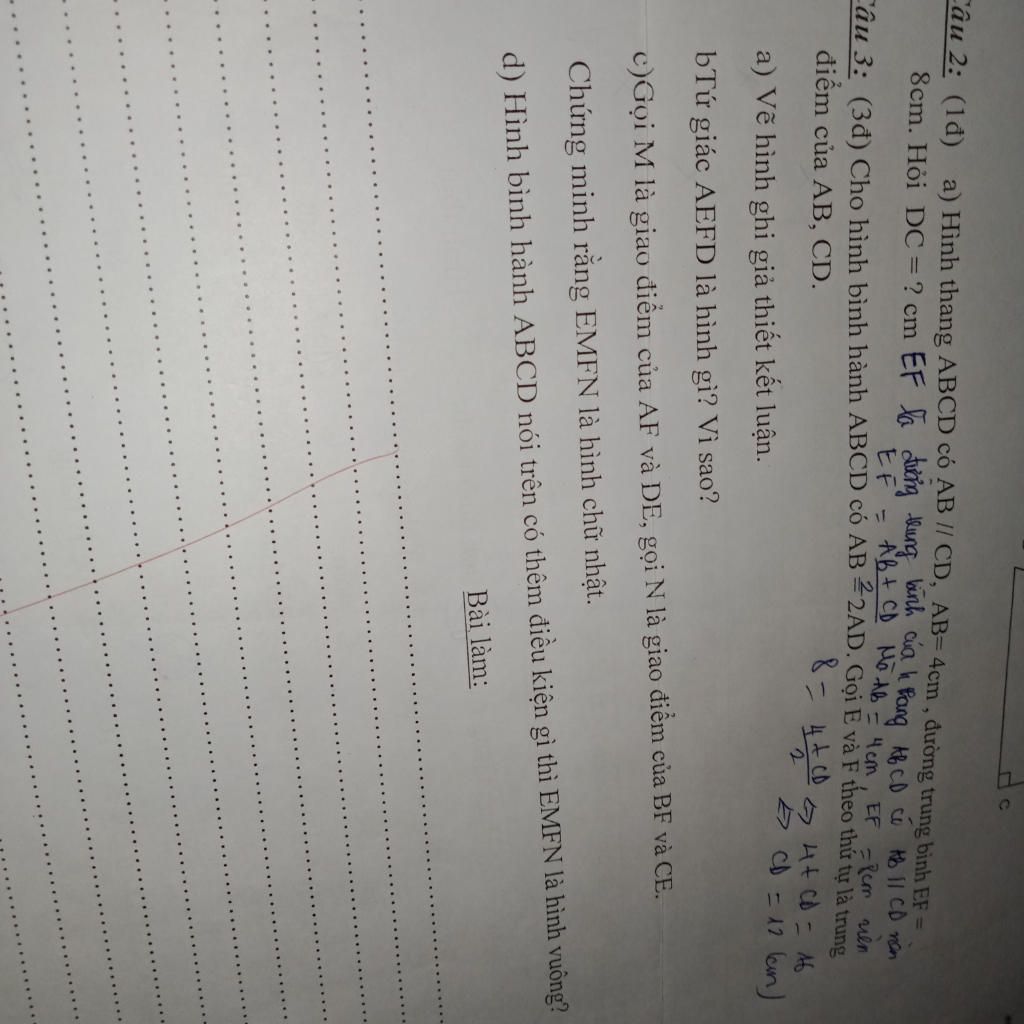 Câu 2: (1đ) a) Hình thang ABCD có AB // CD, AB= 4cm , đường trung bình EF =
8cm. Hỏi DC = ? cm EF là đường trung bình của h thang ABCD có AB // CD nên
EF = AB + CD Mà AB = 4cm, EF = 8cm nên
2
8 = 4 + CD ⇔ 4 + CD = 16
2
⇔ CD = 12 (cm)
Câu 3: (3đ) Cho hình bình hành ABCD có AB = 2AD. Gọi E và F theo thứ tự là trung
điểm của AB, CD.
a) Vẽ hình ghi giả thiết kết luận.
bTứ giác AEFD là hình gì? Vì sao?
c)Gọi M là giao điểm của AF và DE, gọi N là giao điểm của BF và CE.
Chứng minh rằng EMFN là hình chữ nhật.
d) Hình bình hành ABCD nói trên có thêm điều kiện gì thì EMFN là hình vuông?
Bài làm:
C